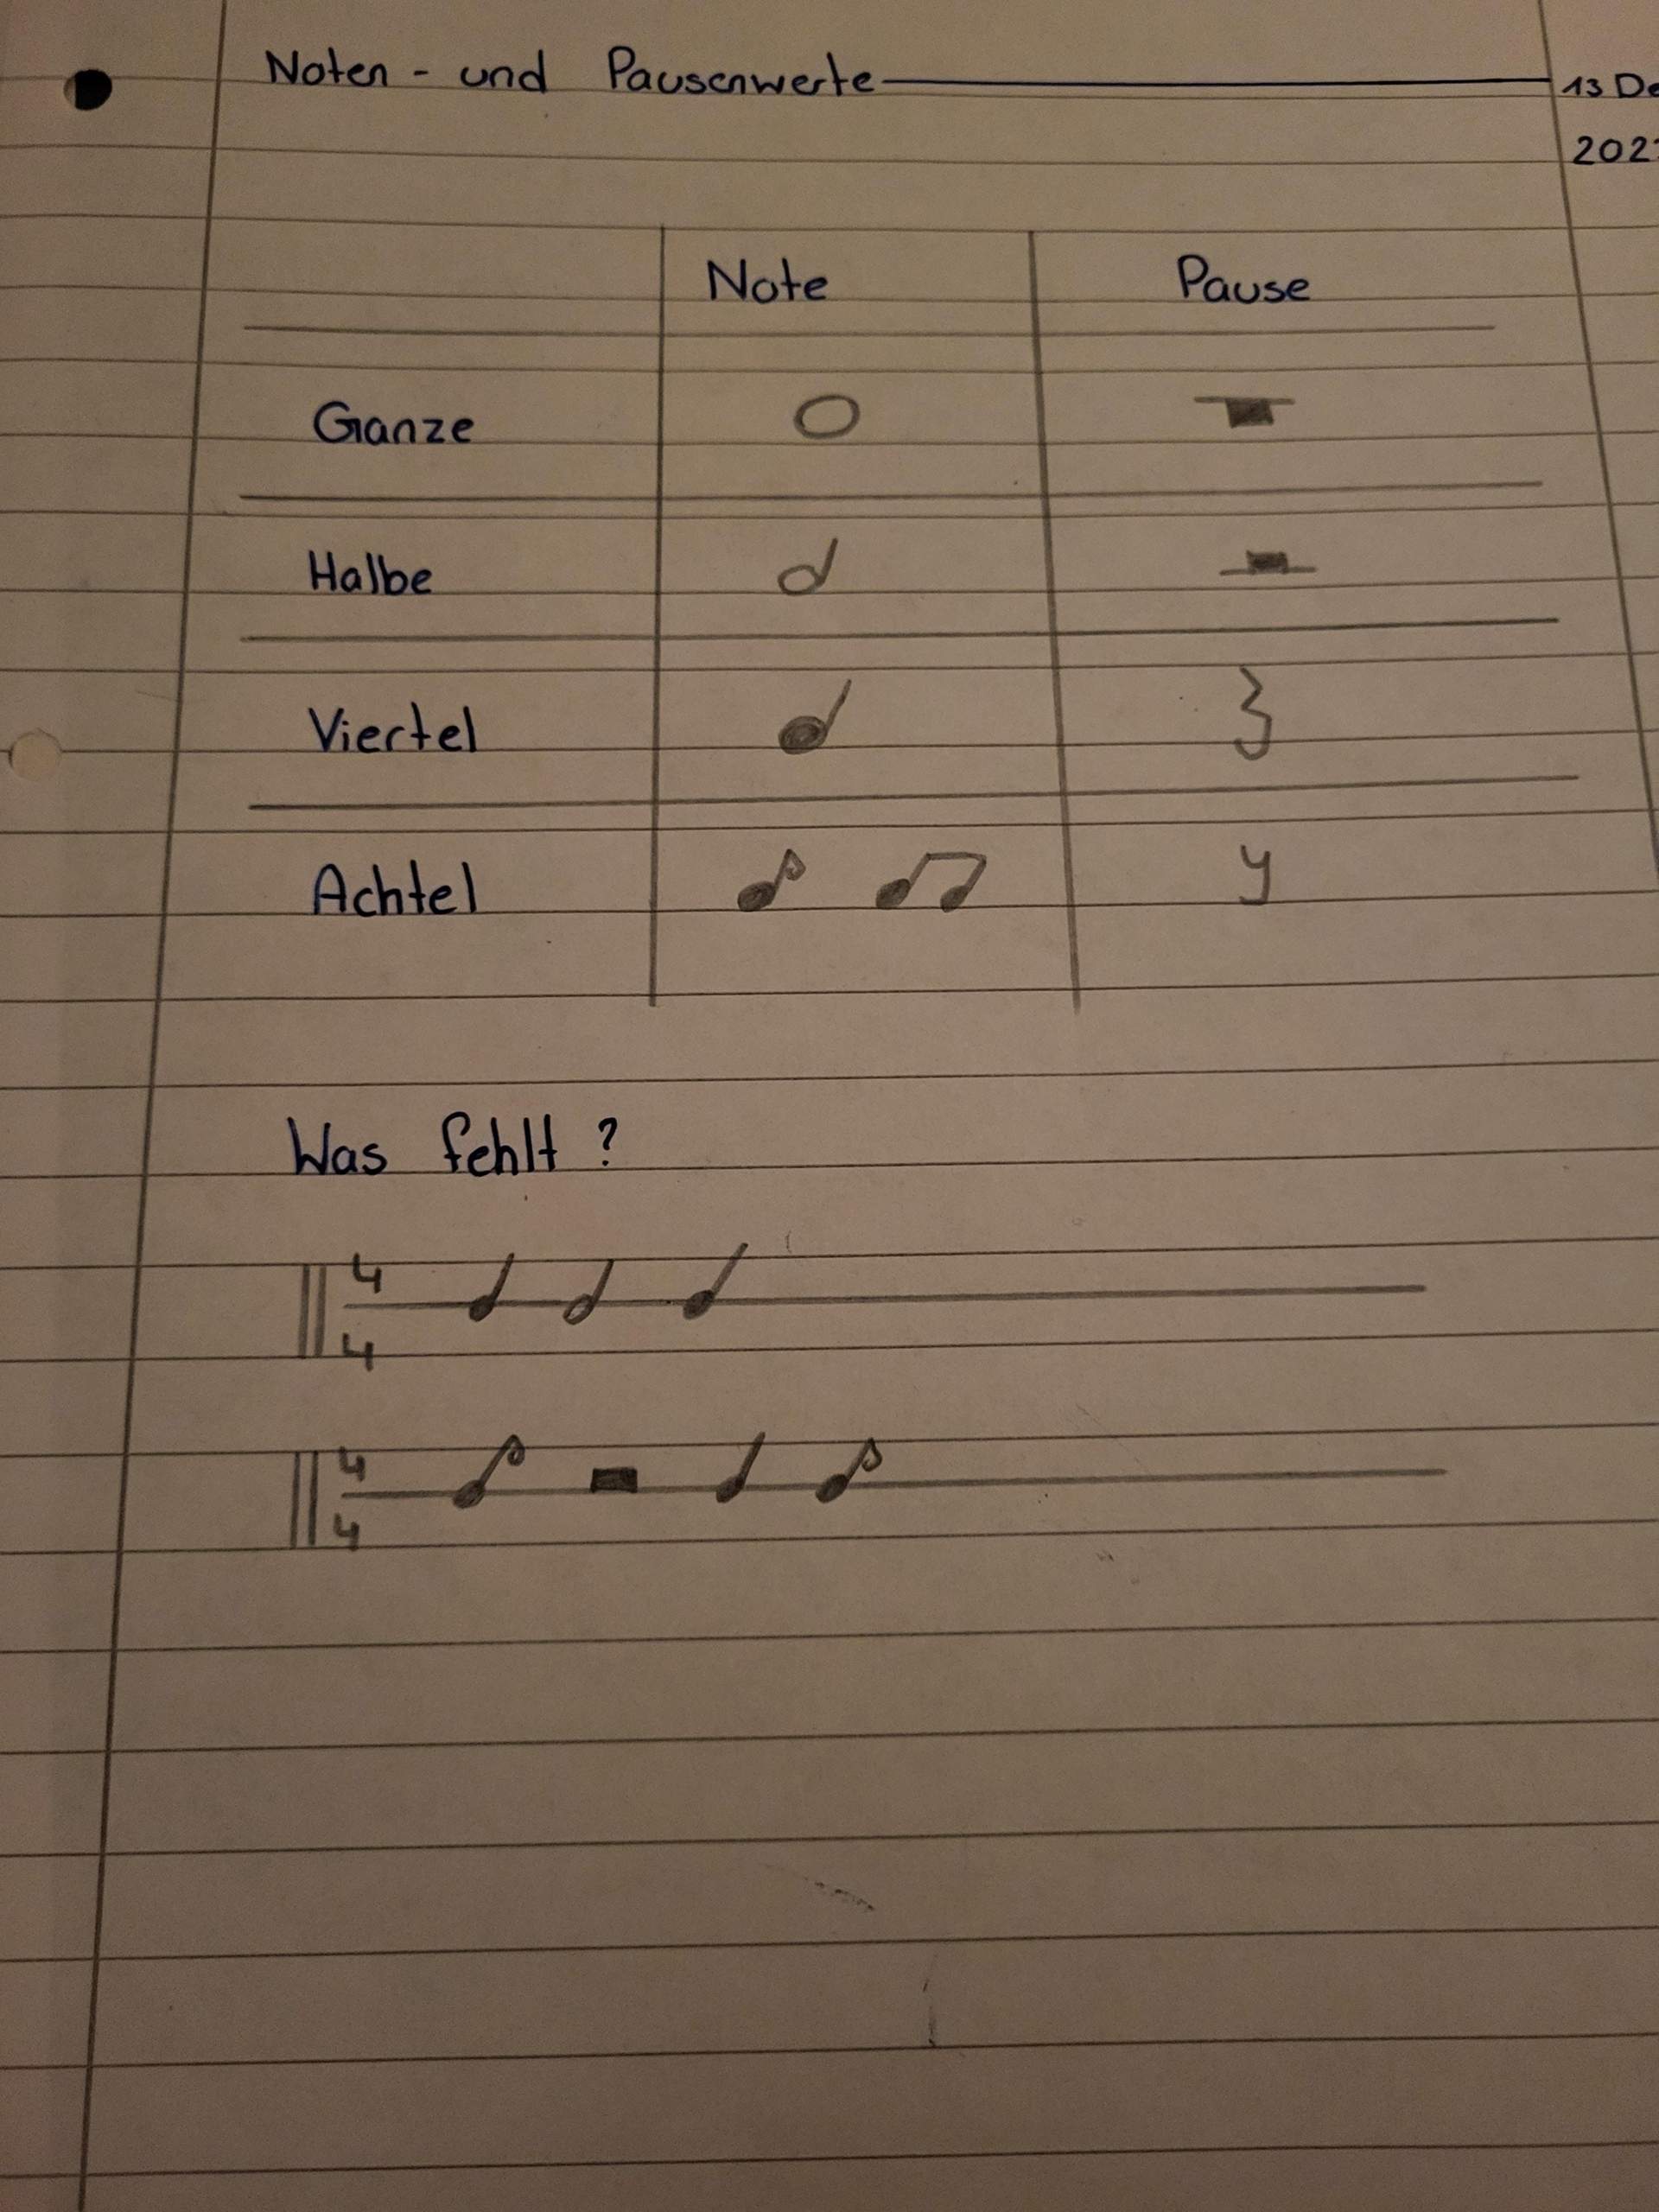 Noten - und Pausenwerte 13 De
202
Note Pause
Ganze
Halbe
Viertel
Achtel
Was fehlt ?
4
4
4
4